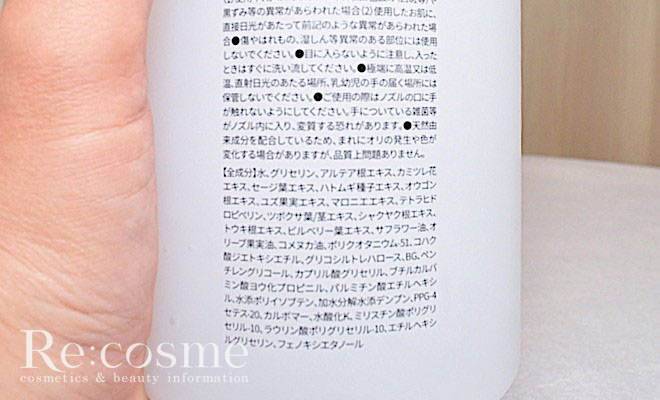 黒ずみ等の異常があらわれた場合(2)使用したお肌に、
直接日光があたって前記のような異常があらわれた場
合●傷やはれもの、湿しん等異常のある部位には使用
しないでください。●目に入らないように注意し、入った
ときはすぐに洗い流してください。●極端に高温又は低
温、直射日光のあたる場所、乳幼児の手の届く場所には
保管しないでください。●ご使用の際はノズルの口に手
が触れないようにしてください。手についている雑菌等
がノズル内に入り、変質する恐れがあります。●天然由
来成分を配合しているため、まれにオリの発生や色が
変化する場合がありますが、品質上問題ありません。
【全成分】水、グリセリン、アルテア根エキス、カミツレ花
エキス、セージ葉エキス、ハトムギ種子エキス、オウゴン
根エキス、ユズ果実エキス、マロニエエキス、テトラヒド
ロピペリン、ツボクサ葉/茎エキス、シャクヤク根エキス、
トウキ根エキス、ビルベリー葉エキス、サフラワー油、オ
リーブ果実油、コメヌカ油、ポリクオタニウム-51、コハク
酸ジエトキシエチル、グリコシルトレハロース、BG、ペン
チレングリコール、カプリル酸グリセリル、ブチルカルバ
ミン酸ヨウ化プロピニル、パルミチン酸エチルヘキシ
ル、水添ポリイソブテン、加水分解水添デンプン、PPG-4
セテス-20、カルボマー、水酸化K、ミリスチン酸ポリグリ
セリル-10、ラウリン酸ポリグリセリル-10、エチルヘキシ
ルグリセリン、フェノキシエタノール
Re:cosme
cosmetics & beauty information